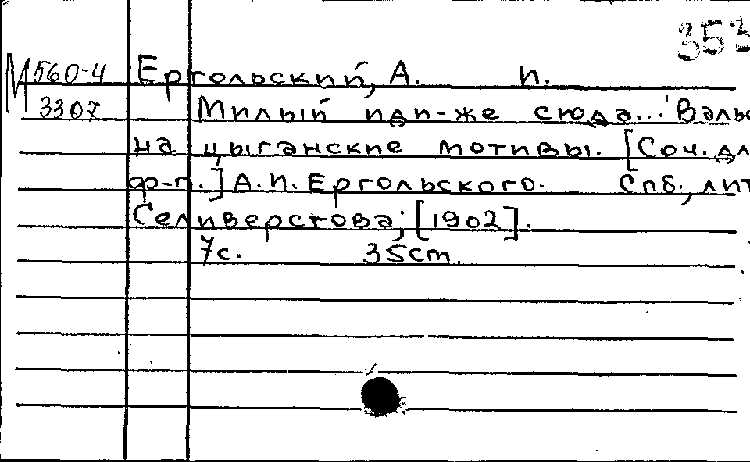 353
М 560-4 Ергольский, А. И.
3307 Милый иди-же сюда... Валь
на цыганские мотивы. [Соч. дл
ф-п.] А.И. Ергольского. Спб., лит
Селиверстова, [1902].
7с. 35см.